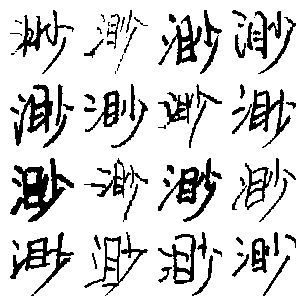 渺渺渺渺
渺渺渺渺
渺渺渺渺
渺渺渺渺